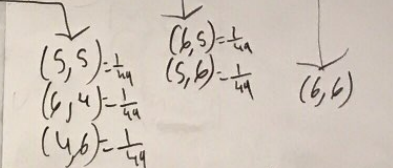 (5,5)=1/49
(6,4)=1/49
(4,6)=1/49
(6,5)=1/49
(5,6)=1/49
(6,6)